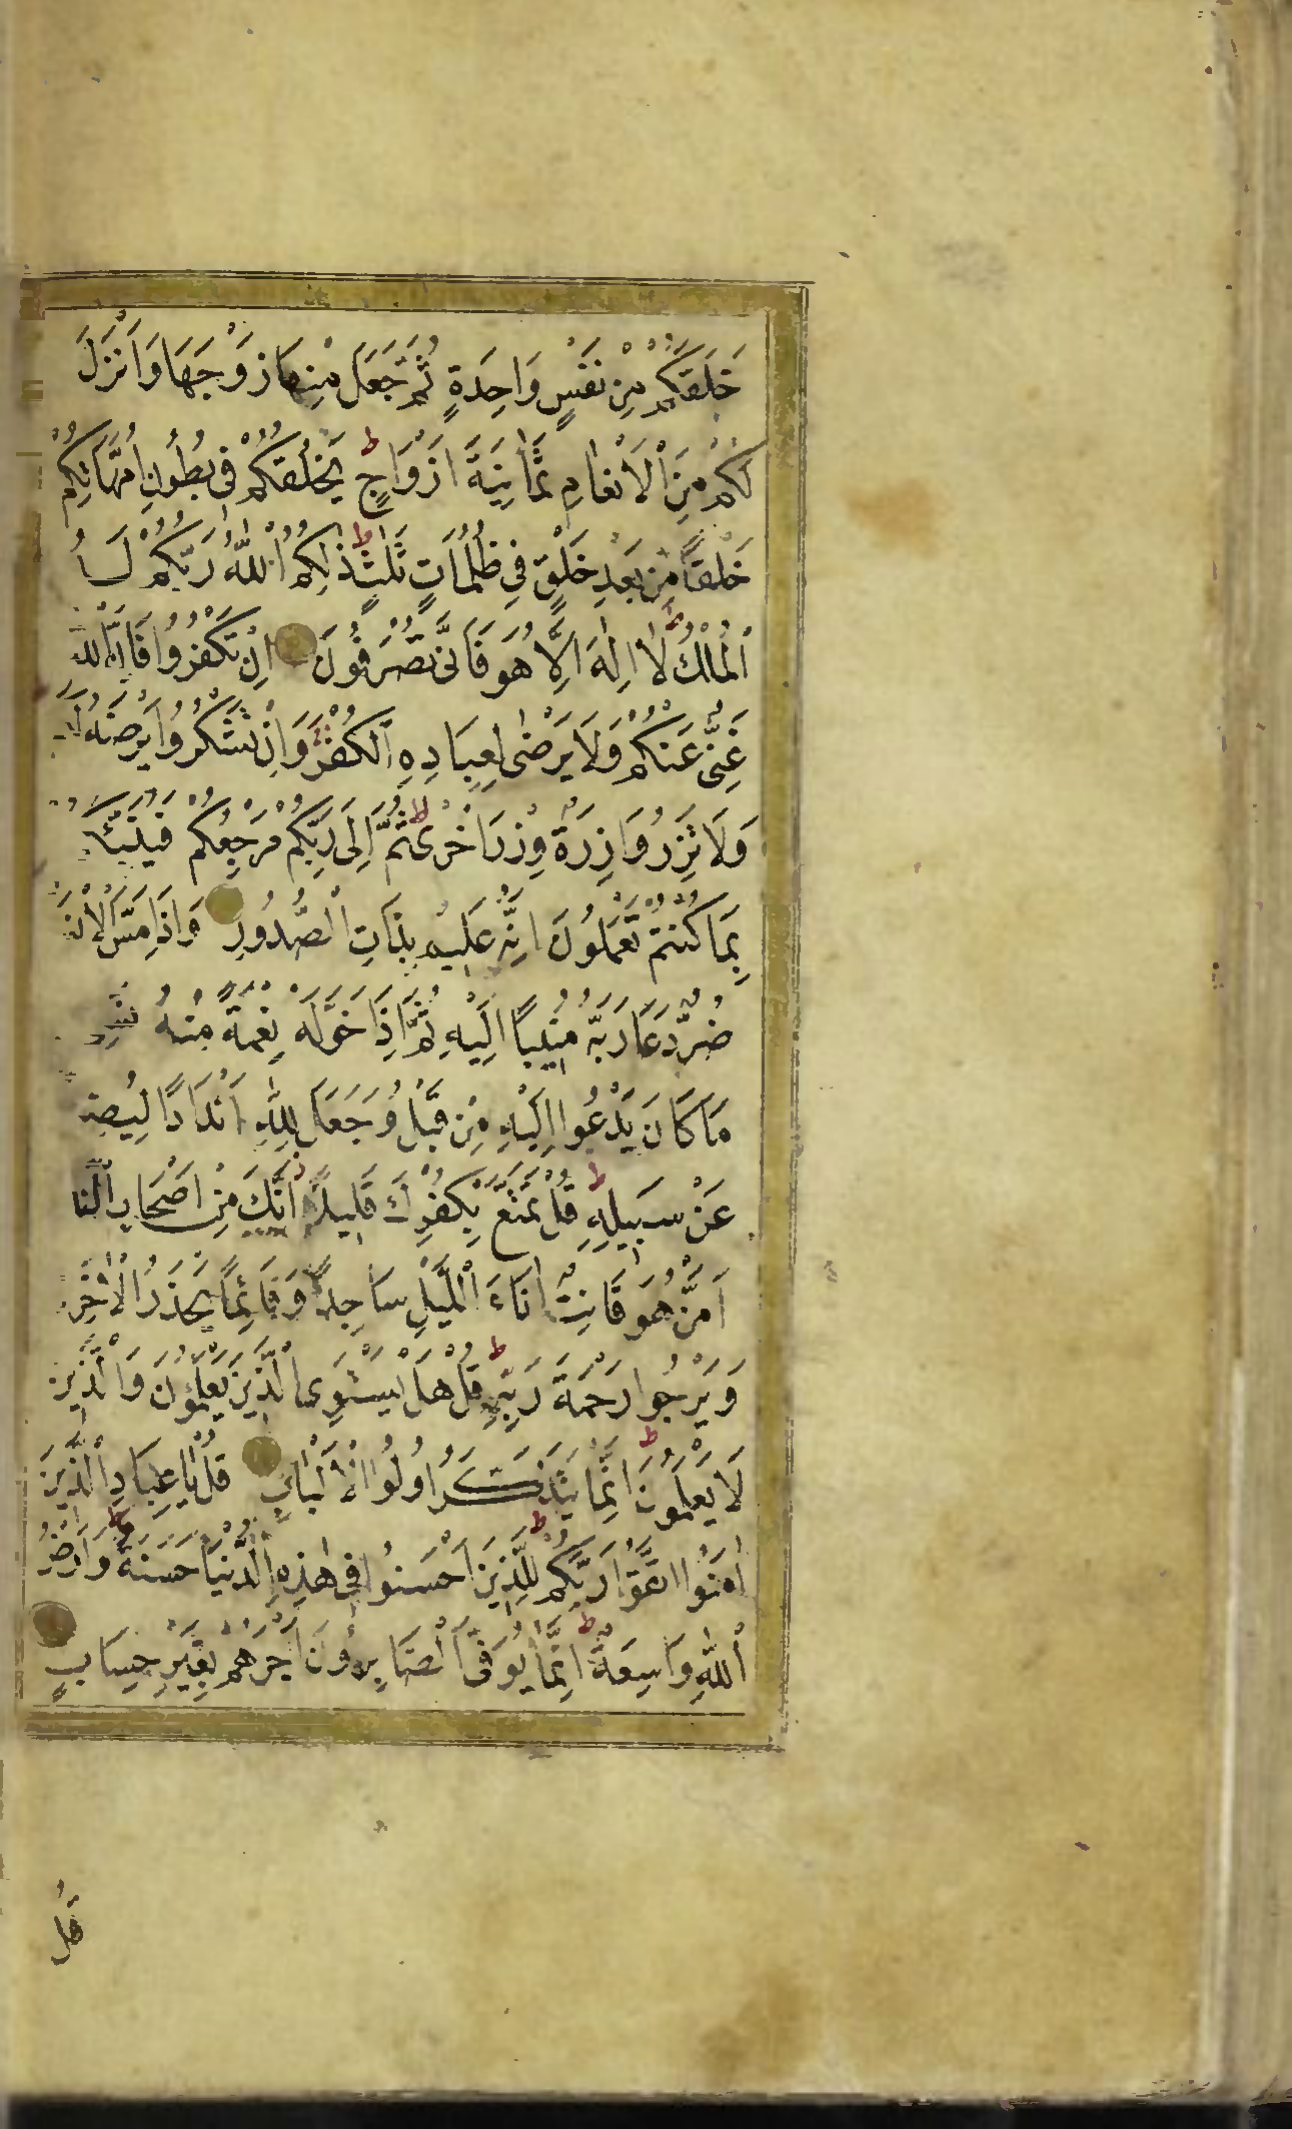 خَلَقَكُمْ مِنْ نَفْسٍ وَاحِدَةٍ ثُمَّ جَعَلَ مِنْهَا زَوْجَهَا وَاَنْزَلَ
لَكُمْ مِنَ الْاَنْعَامِ ثَمَانِيَةَ اَزْوَاجٍ ط يَخْلُقُكُمْ فِى بُطُونِ اُمَّهَاتِكُمْ
خَلْقًا مِنْ بَعْدِ خَلْقٍ فِى ظُلُمَاتٍ ثَلٰثٍ ط ذٰلِكُمُ اللّٰهُ رَبُّكُمْ لَهُ
الْمُلْكُ ط لَا اِلٰهَ اِلَّا هُوَ فَاَنّٰى تُصْرَفُونَ اِنْ تَكْفُرُوا فَاِنَّ اللّٰهَ
غَنِىٌّ عَنْكُمْ وَلَا يَرْضٰى لِعِبَادِهِ الْكُفْرَ وَاِنْ تَشْكُرُوا يَرْضَهُ
وَلَا تَزِرُ وَازِرَةٌ وِزْرَ اُخْرٰى ط ثُمَّ اِلَى رَبِّكُمْ مَرْجِعُكُمْ فَيُنَبِّئُ
بِمَا كُنْتُمْ تَعْمَلُونَ اِنَّهُ عَلِيمٌ بِذَاتِ الصُّدُورِ وَاِذَا مَسَّ الْاِنْسَ
ضُرٌّ دَعَا رَبَّهُ مُنِيبًا اِلَيْهِ ثُمَّ اِذَا خَوَّلَهُ نِعْمَةً مِنْهُ نَسِىَ
مَا كَانَ يَدْعُوا اِلَيْهِ مِنْ قَبْلُ وَجَعَلَ لِلّٰهِ اَنْدَادًا لِيُضِ
عَنْ سَبِيلِهِ ط قُلْ تَمَتَّعْ بِكُفْرِكَ قَلِيلًا اِنَّكَ مِنْ اَصْحَابِ النَّا
اَمَّنْ هُوَ قَانِتٌ اٰنَاءَ الَّيْلِ سَاجِدًا وَقَائِمًا يَحْذَرُ الْاٰخِرَ
وَيَرْجُوا رَحْمَةَ رَبِّهِ ط قُلْ هَلْ يَسْتَوِى الَّذِينَ يَعْلَمُونَ وَالَّذِينَ
لَا يَعْلَمُونَ ط اِنَّمَا يَتَذَكَّرُ اُولُوا الْاَلْبَابِ قُلْ يَا عِبَادِ الَّذِينَ
اٰمَنُوا اتَّقُوا رَبَّكُمْ ط لِلَّذِينَ اَحْسَنُوا فِى هٰذِهِ الدُّنْيَا حَسَنَةٌ ط وَاَرْضُ
اللّٰهِ وَاسِعَةٌ ط اِنَّمَا يُوَفَّى الصَّابِرُونَ اَجْرَهُمْ بِغَيْرِ حِسَابٍ
قُل